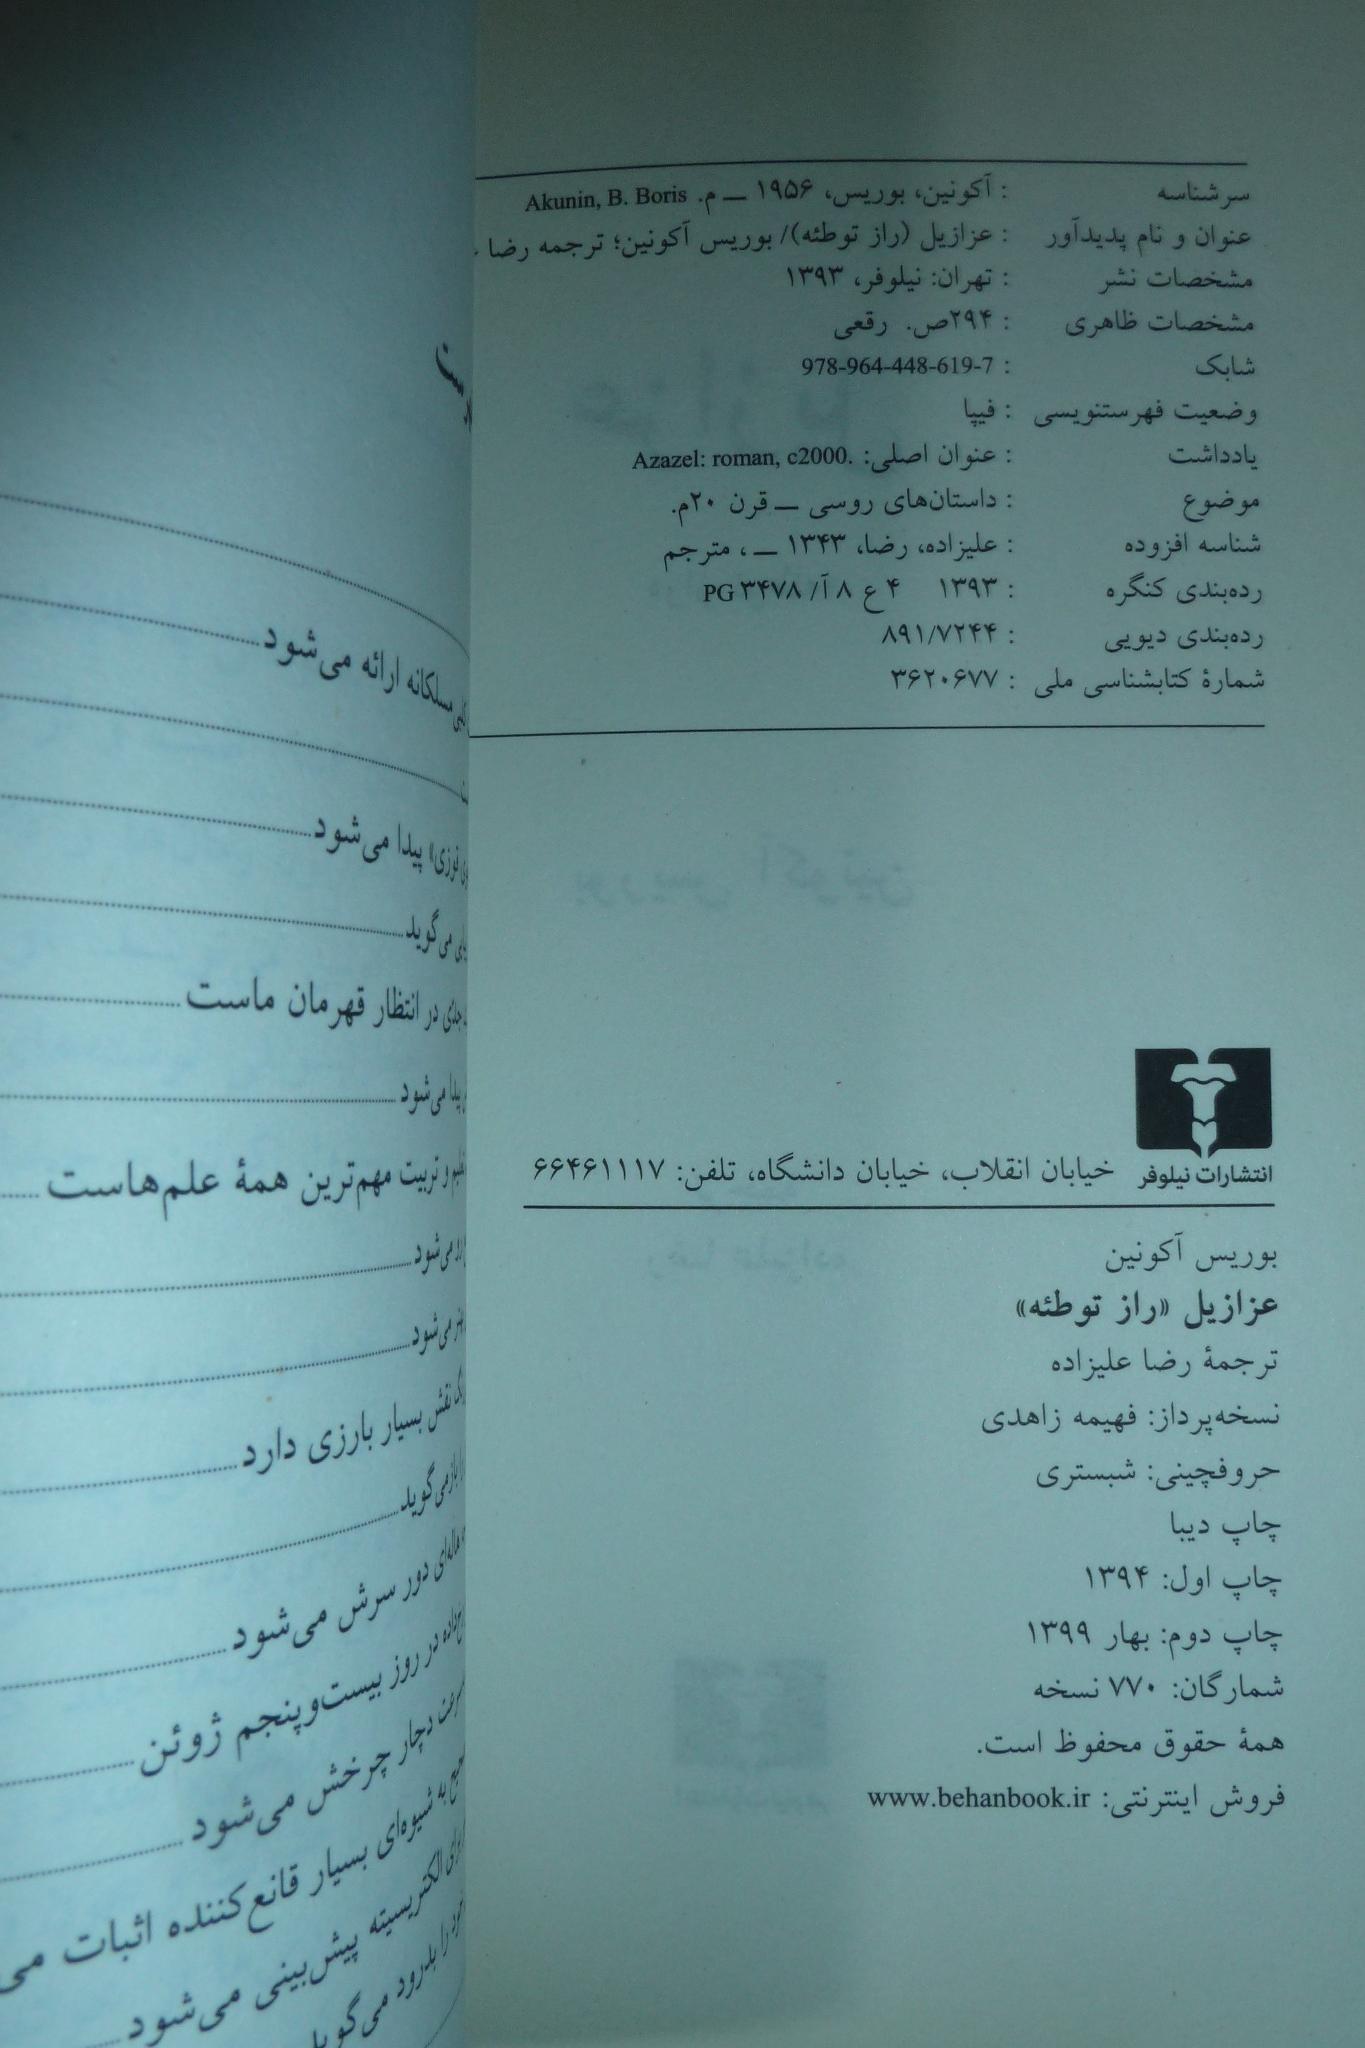 سرشناسه : آکونین، بوریس، ۱۹۵۶ ـ م. Akunin, B. Boris
عنوان و نام پدیدآور : عزازیل (راز توطئه)/ بوریس آکونین؛ ترجمه رضا
مشخصات نشر : تهران: نیلوفر، ۱۳۹۳
مشخصات ظاهری : ۲۹۴ص. رقعی
شابک : 978-964-448-619-7
وضعیت فهرستنویسی : فیپا
یادداشت : عنوان اصلی: Azazel: roman, c2000.
موضوع : داستان‌های روسی ـ قرن ۲۰م.
شناسه افزوده : علیزاده، رضا، ۱۳۴۳ ـ ، مترجم
رده‌بندی کنگره : ۱۳۹۳ ۴ ع ۸ آ/ PG ۳۴۷۸
رده‌بندی دیویی : ۸۹۱/۷۲۴۴
شمارهٔ کتابشناسی ملی : ۳۶۲۰۶۷۷
انتشارات نیلوفر خیابان انقلاب، خیابان دانشگاه، تلفن: ۶۶۴۶۱۱۱۷
بوریس آکونین
عزازیل «راز توطئه»
ترجمهٔ رضا علیزاده
نسخه‌پرداز: فهیمه زاهدی
حروفچینی: شبستری
چاپ دیبا
چاپ اول: ۱۳۹۴
چاپ دوم: بهار ۱۳۹۹
شمارگان: ۷۷۰ نسخه
همهٔ حقوق محفوظ است.
فروش اینترنتی: www.behanbook.ir
ارائه می‌شود
پیدا می‌شود
می‌گوید
جدّی در انتظار قهرمان ماست
پیدا می‌شود
و تربیت مهم‌ترین همهٔ علم‌هاست
می‌شود
می‌شود
نقش بسیار بارزی دارد
بازمی‌گوید
هاله‌ای دور سرش می‌شود
در روز بیست‌وپنجم ژوئن
دچار چرخش می‌شود
به شیوه‌ای بسیار قانع‌کننده اثبات می
الکتریسیته پیش‌بینی می‌شود
را بدرود می‌گوید